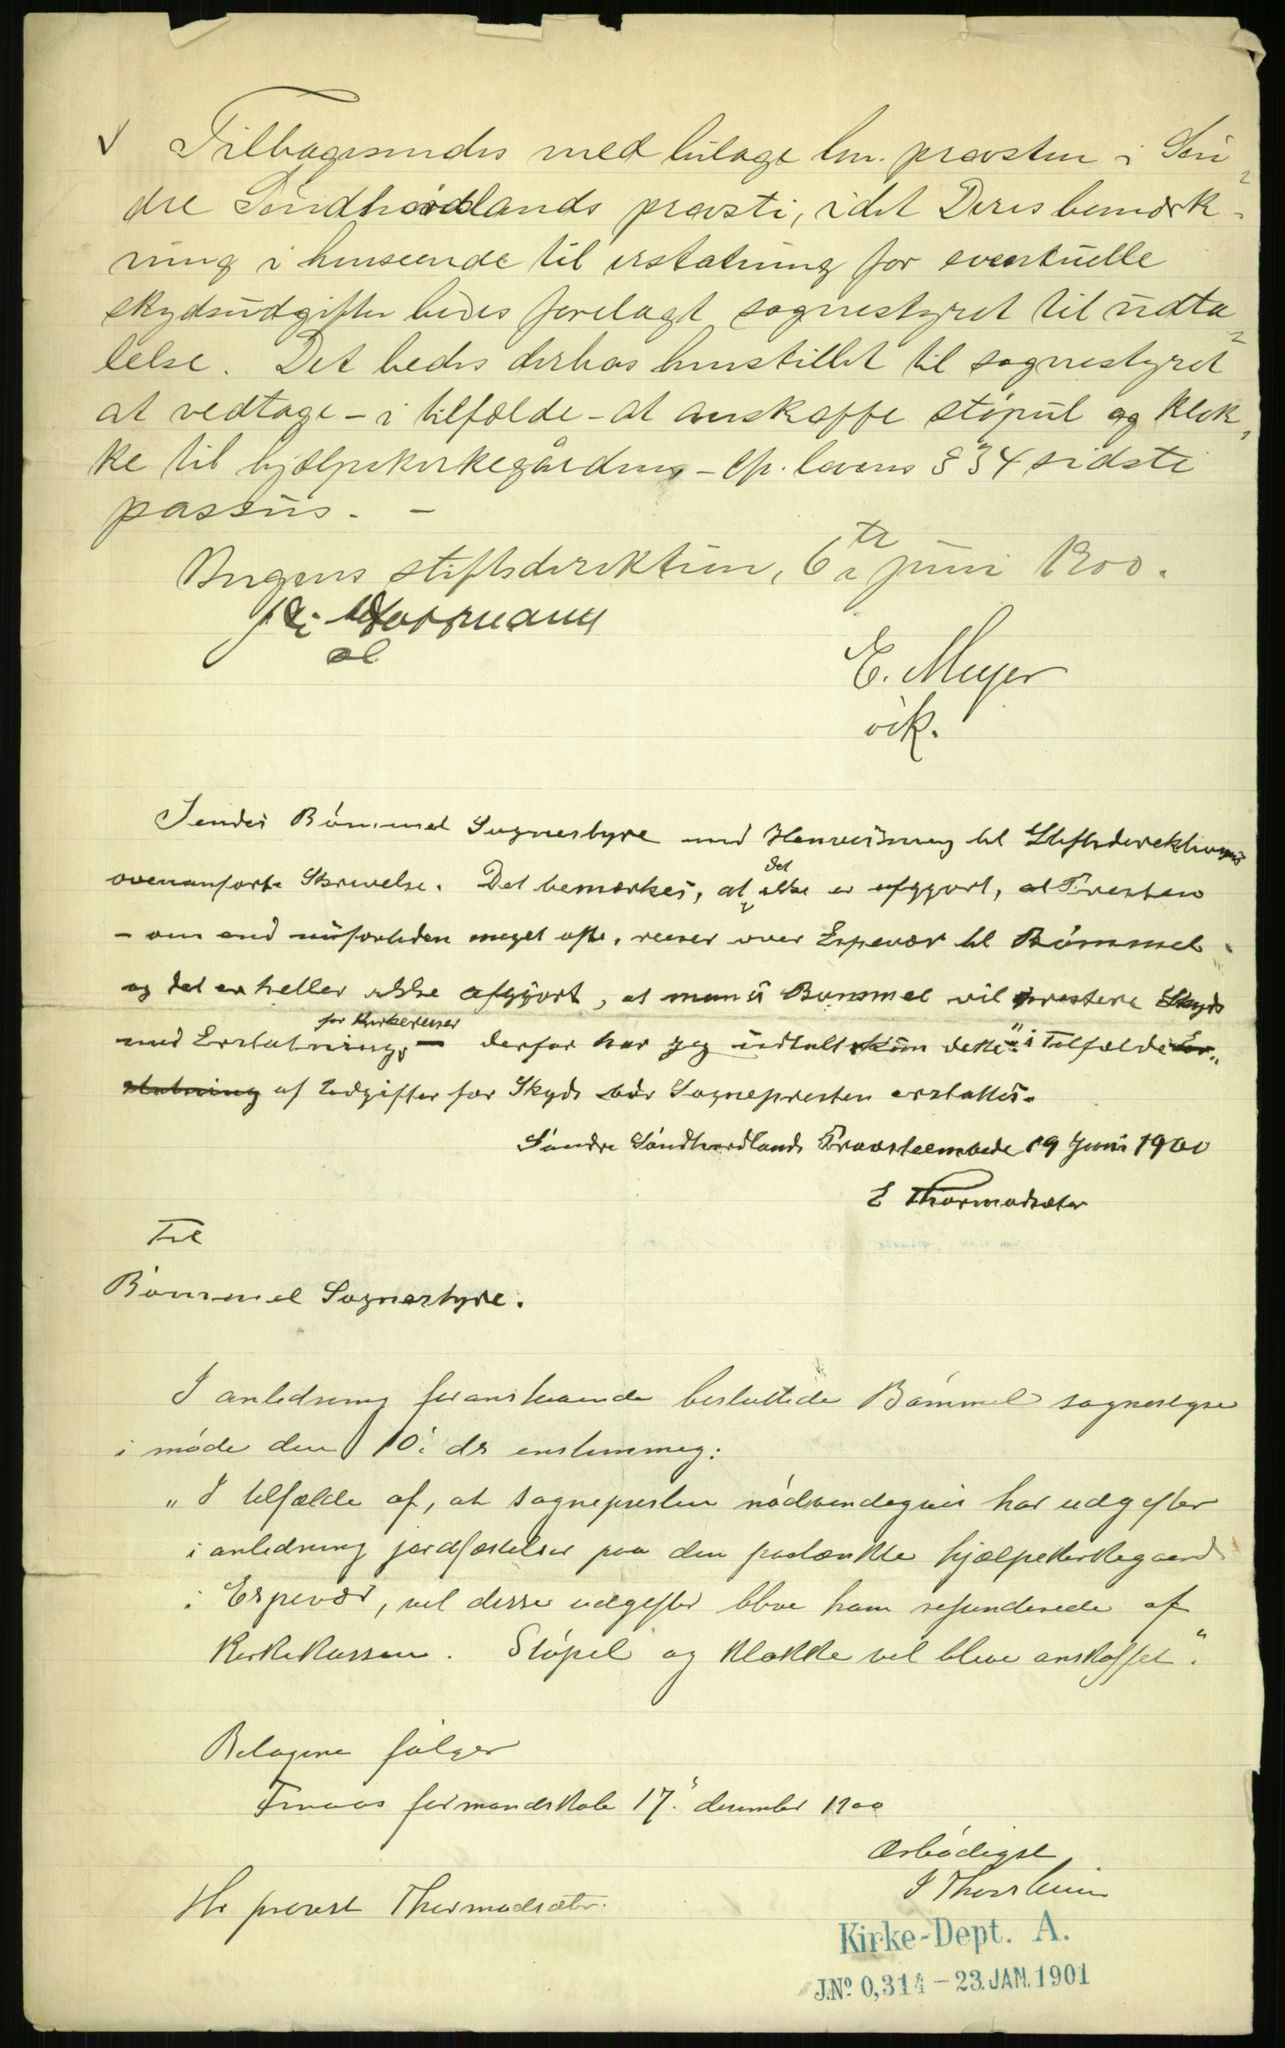 Tilbagesendes med bilage hr. provsten i Søn-
dre Søndhordlands provsti, idet Deres bemærk-
ning i henseende til erstatning for eventuelle
skydsudgifter bedes forelagt sognestyret til udta-
lelse. Det bedes derhos henstillet til sognestyret
at vedtage – i tilfælde – at anskaffe støpul og klok-
ke til hjælpekirkegården – cfr. lovens § 34 sidste
passus. –
Bergens stiftsdirektion, 6te juni 1900.
E. Meyer
vik.
Sendes Bømmel Sognestyre med Henvisning til Stiftsdirektionens
ovenanførte Skrivelse. Det bemærkes, at det ikke er afgjort, at Presten
– om end nufortiden meget ofte, reiser over Espevær til Bømmel
og det er heller ikke afgjort, at man i Bømmel vil prestere Skyds
med Erstatning for Kirkereiser – derfor har jeg udtalt kun dette: "i Tilfælde Er-
statning af Udgifter for Skyds bør Sognepresten erstattes.
Søndre Søndhordlands Provsteembede 19 Juni 1900
E Thormodsæter
Til
Bømmel Sognestyre.
I anledning foranstaaende besluttede Bømmel sognestyre
i møde den 10. ds enstemmig:
"I tilfælde af, at sognepresten nødvendigvis har udgifter
i anledning jordfæstelser paa den paatænkte hjælpekirkegaard
i Espevær, vil disse udgifter blive ham refunderede af
Kirkekassen. Støpel og klokke vil blive anskaffet."
Bilagene følger
Finaas formandskab 17. desember 1900
Ærbødigst
Hr provst Thormodsæter.
Kirke-Dept. A.
J.No 0,314 – 23. JAN. 1901